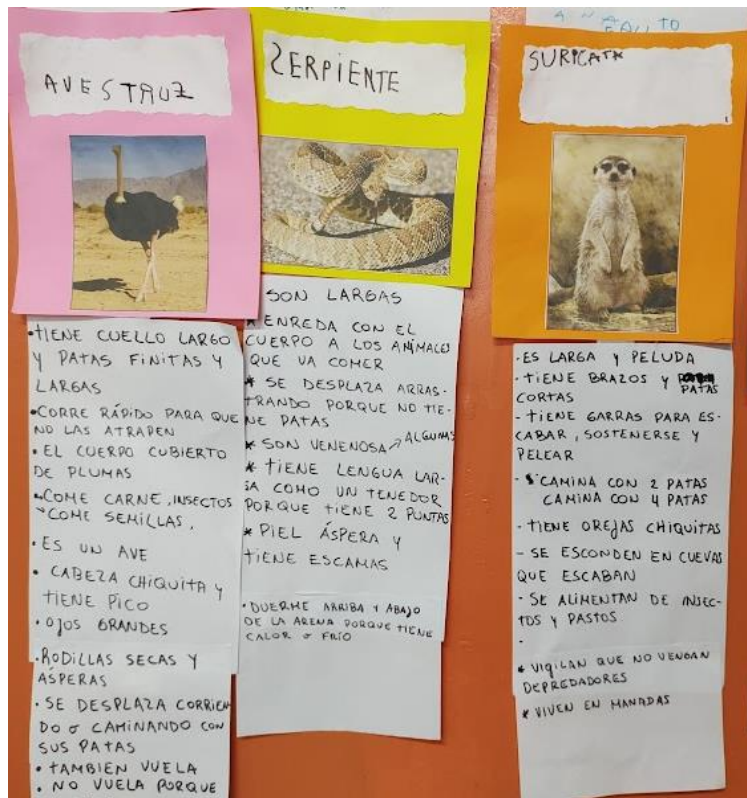 AVESTRUZ
•TIENE CUELLO LARGO
Y PATAS FINITAS Y
LARGAS
•CORRE RÁPIDO PARA QUE
NO LAS ATRAPEN
• EL CUERPO CUBIERTO
DE PLUMAS
•COME CARNE, INSECTOS
•COME SEMILLAS.
•ES UN AVE
• CABEZA CHIQUITA Y
TIENE PICO
•OJOS GRANDES
•RODILLAS SECAS Y
ÁSPERAS
• SE DESPLAZA CORRIEN
DO O CAMINANDO CON
SUS PATAS
• TAMBIEN VUELA
• NO VUELA PORQUE
ZERPIENTE
SON LARGAS
* ENREDA CON EL
CUERPO A LOS ANIMALES
QUE VA COMER
* SE DESPLAZA ARRAS-
TRANDO PORQUE NO TIE-
NE PATAS
* SON VENENOSA → ALGUNAS
* TIENE LENGUA LAR-
GA COMO UN TENEDOR
PORQUE TIENE 2 PUNTAS
* PIEL ÁSPERA Y
TIENE ESCAMAS
• DUERME ARRIBA Y ABAJO
DE LA ARENA PORQUE TIENE
CALOR O FRÍO
SURICATA
- ES LARGA Y PELUDA
- TIENE BRAZOS Y PATAS
CORTAS
- TIENE GARRAS PARA ES-
CABAR, SOSTENERSE Y
PELEAR
- CAMINA CON 2 PATAS
CAMINA CON 4 PATAS
- TIENE OREJAS CHIQUITAS
- SE ESCONDEN EN CUEVAS
QUE ESCABAN
- SE ALIMENTAN DE INSEC-
TOS Y PASTOS
-
* VIGILAN QUE NO VENGAN
DEPREDADORES
* VIVEN EN MANADAS